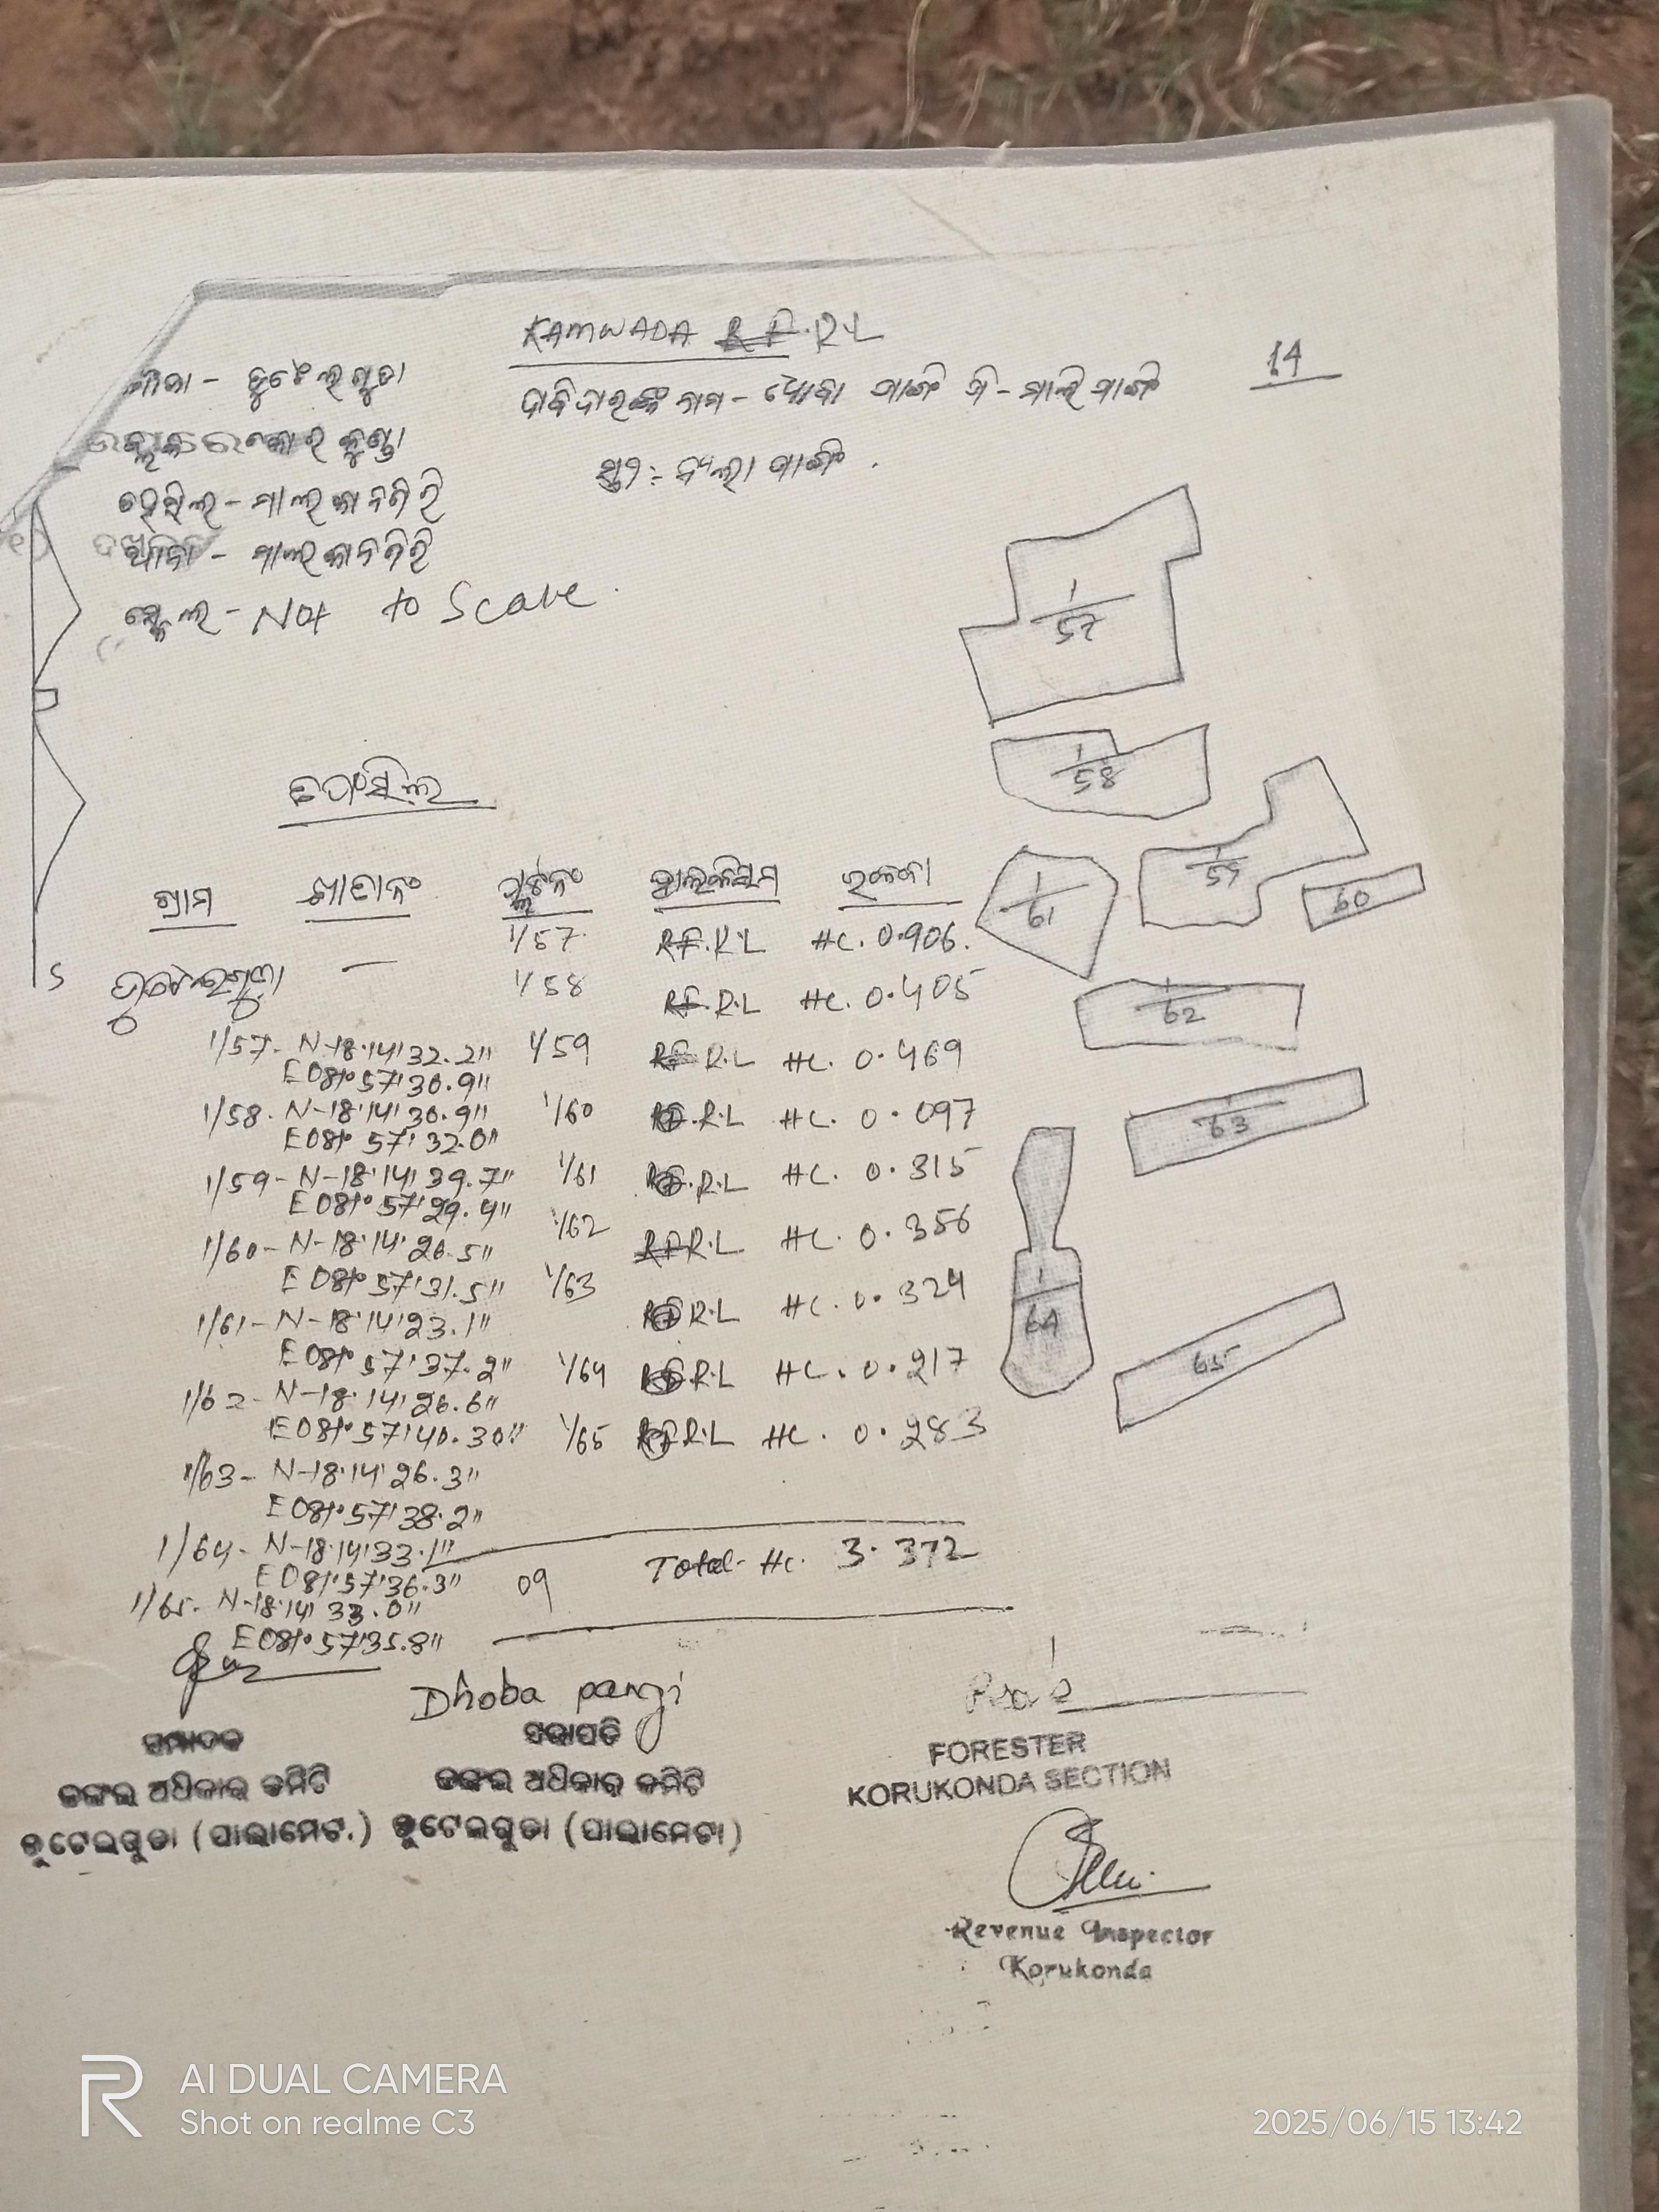 KAMWADA R.F. R.L
14
ମୌଜା - ଭୁଟେଲଗୁଡା
ଦାବିଦାରଙ୍କ ନାମ - ଧୋବା ପାଙ୍ଗି ପି - ମାଲି ପାଙ୍ଗି
କୁଣ୍ଡା
ସ୍ତ୍ରୀ :- ପାଙ୍ଗି .
ତହସିଲ - ମାଲକାନଗିରି
ଥାନା - ମାଲକାନଗିରି
ସ୍କେଲ - Not to Scale
1/57
1/58
1/59
60
1/61
1/62
1/63
1/64
65
ତପସିଲ
ଗ୍ରାମ ଖାତା ନଂ ପ୍ଲଟ ନଂ ହାଲ କିସମ ରକବା
1/57 RF. R.L Hc. 0.906.
S ଭୁଟେଲଗୁଡା — 1/58 RF. R.L Hc. 0.405
1/57- N-18°14'32.2" 1/59 RF R.L Hc. 0.469
E 081°57'30.9"
1/58. N-18°14'30.9" 1/60 RF. R.L Hc. 0.097
E 081°57'32.0"
1/59- N-18°14'39.7" 1/61 RF. R.L Hc. 0.315
E 081°57'29.4"
1/60- N-18°14'26.5" 1/62 RF R.L Hc. 0.356
E 081°57'31.5" 1/63 RF R.L Hc. 0.324
1/61- N-18°14'23.1"
E 081°57'37.2" 1/64 RF R.L Hc. 0.217
1/62- N-18°14'26.6"
E 081°57'40.30" 1/65 RF R.L Hc. 0.283
1/63- N-18°14'26.3"
E 081°57'38.2"
1/64- N-18°14'33.1"
E 081°57'36.3" 09 Total- Hc. 3.372
1/65- N-18°14'33.0"
E 081°57'35.8"
Dhoba pangi
ସମ୍ପାଦକ
ଜଙ୍ଗଲ ଅଧିକାର କମିଟି
ଭୁଟେଲଗୁଡା (ପାଲାମେଟ.)
ସଭାପତି
ଜଙ୍ଗଲ ଅଧିକାର କମିଟି
ଭୁଟେଲଗୁଡା (ପାଲାମେଟା)
FORESTER
KORUKONDA SECTION
Revenue Inspector
Korukonda
AI DUAL CAMERA
Shot on realme C3
2025/06/15 13:42